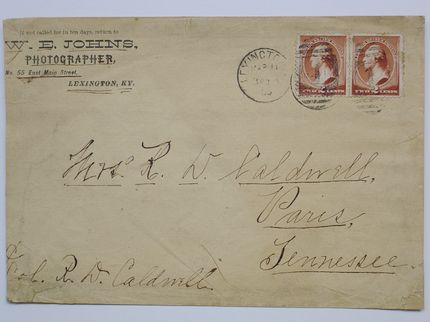 If not called for in ten days, return to
W. E. JOHNS,
PHOTOGRAPHER,
No. 55 East Main Street,
LEXINGTON, KY.
LEXINGTON
TWO 2 CENTS
TWO 2 CENTS
Mrs. R. D. Caldwell,
Paris,
Tennessee.
R. D. Caldwell